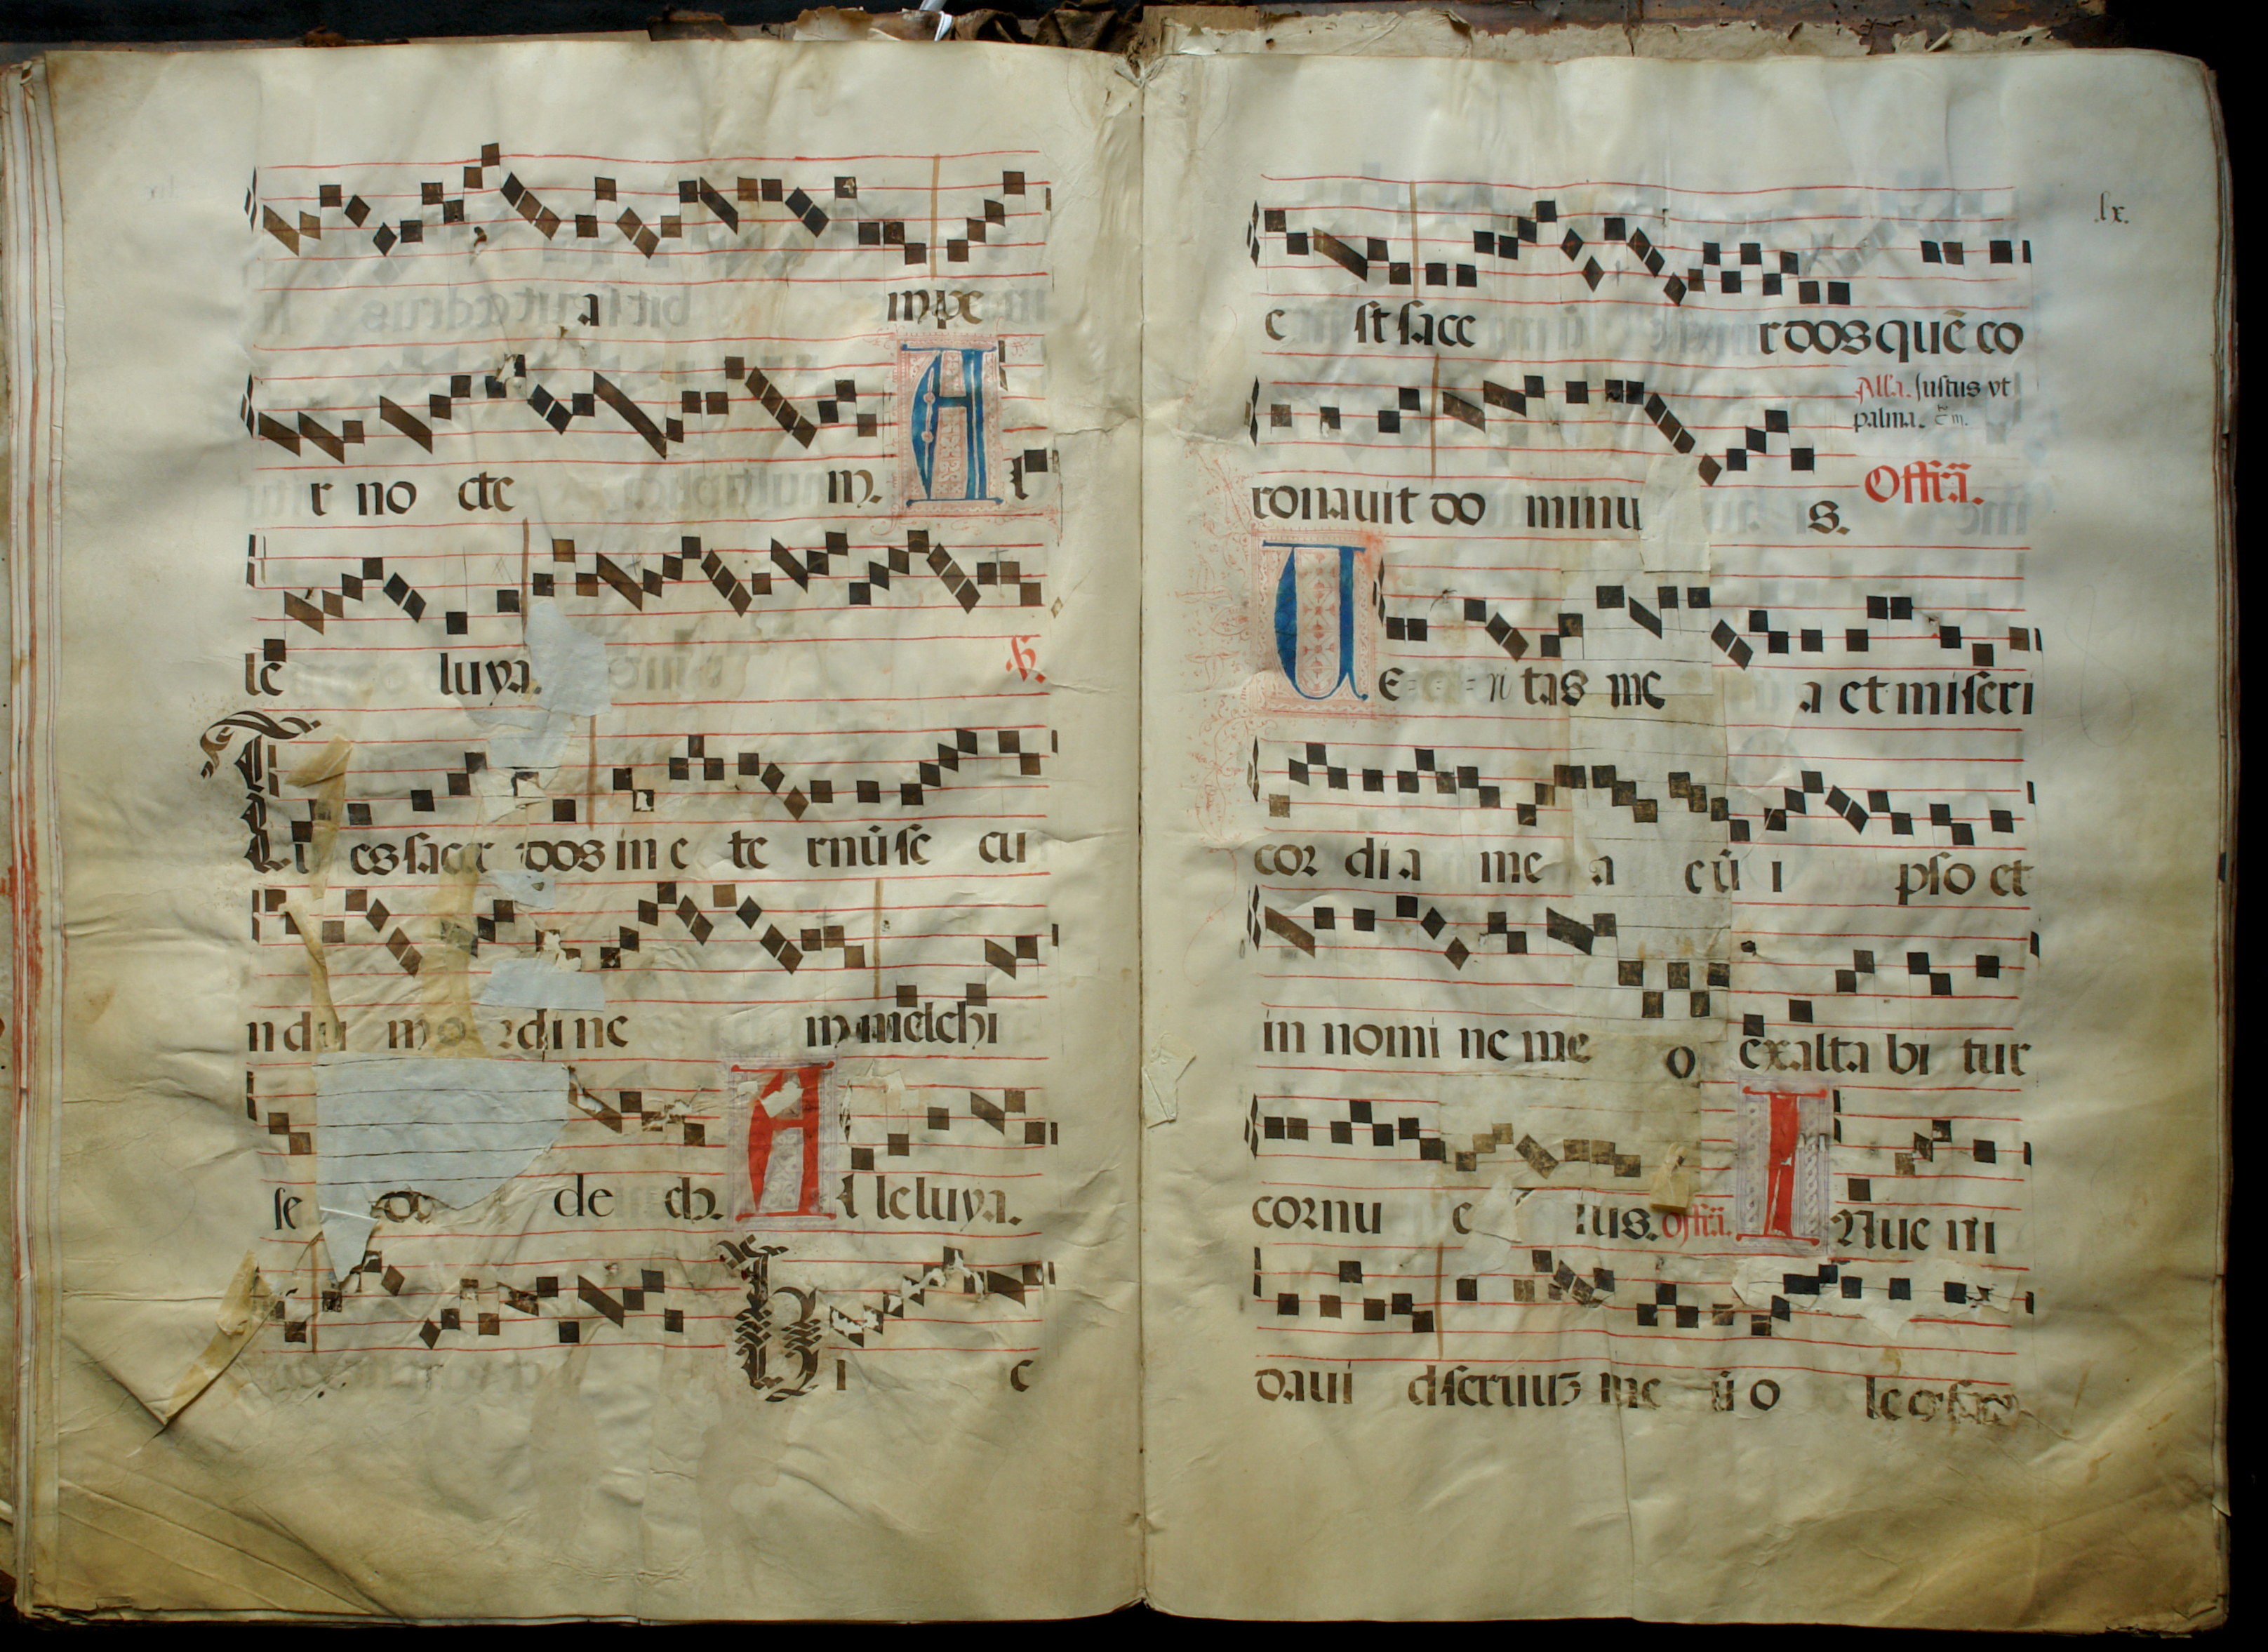 a m pe
r no cte m. A l
le luya. ℣.
Tu es sacer dos in e te rnū se cu
ndu m o rdi ne m melchi
se de ch. A l leluya.
H i c
.lx.
e st sace rdos quē co
Alla. Justus vt
palma.
ronauit do minu s. Offr̄a.
U E ri tas me a et miseri
cor di a me a cū i pso et
in nomi ne me o exalta bi tur
cornu e ius. offr̄a. I Nue ni
daui d seruuʒ me ū o leo